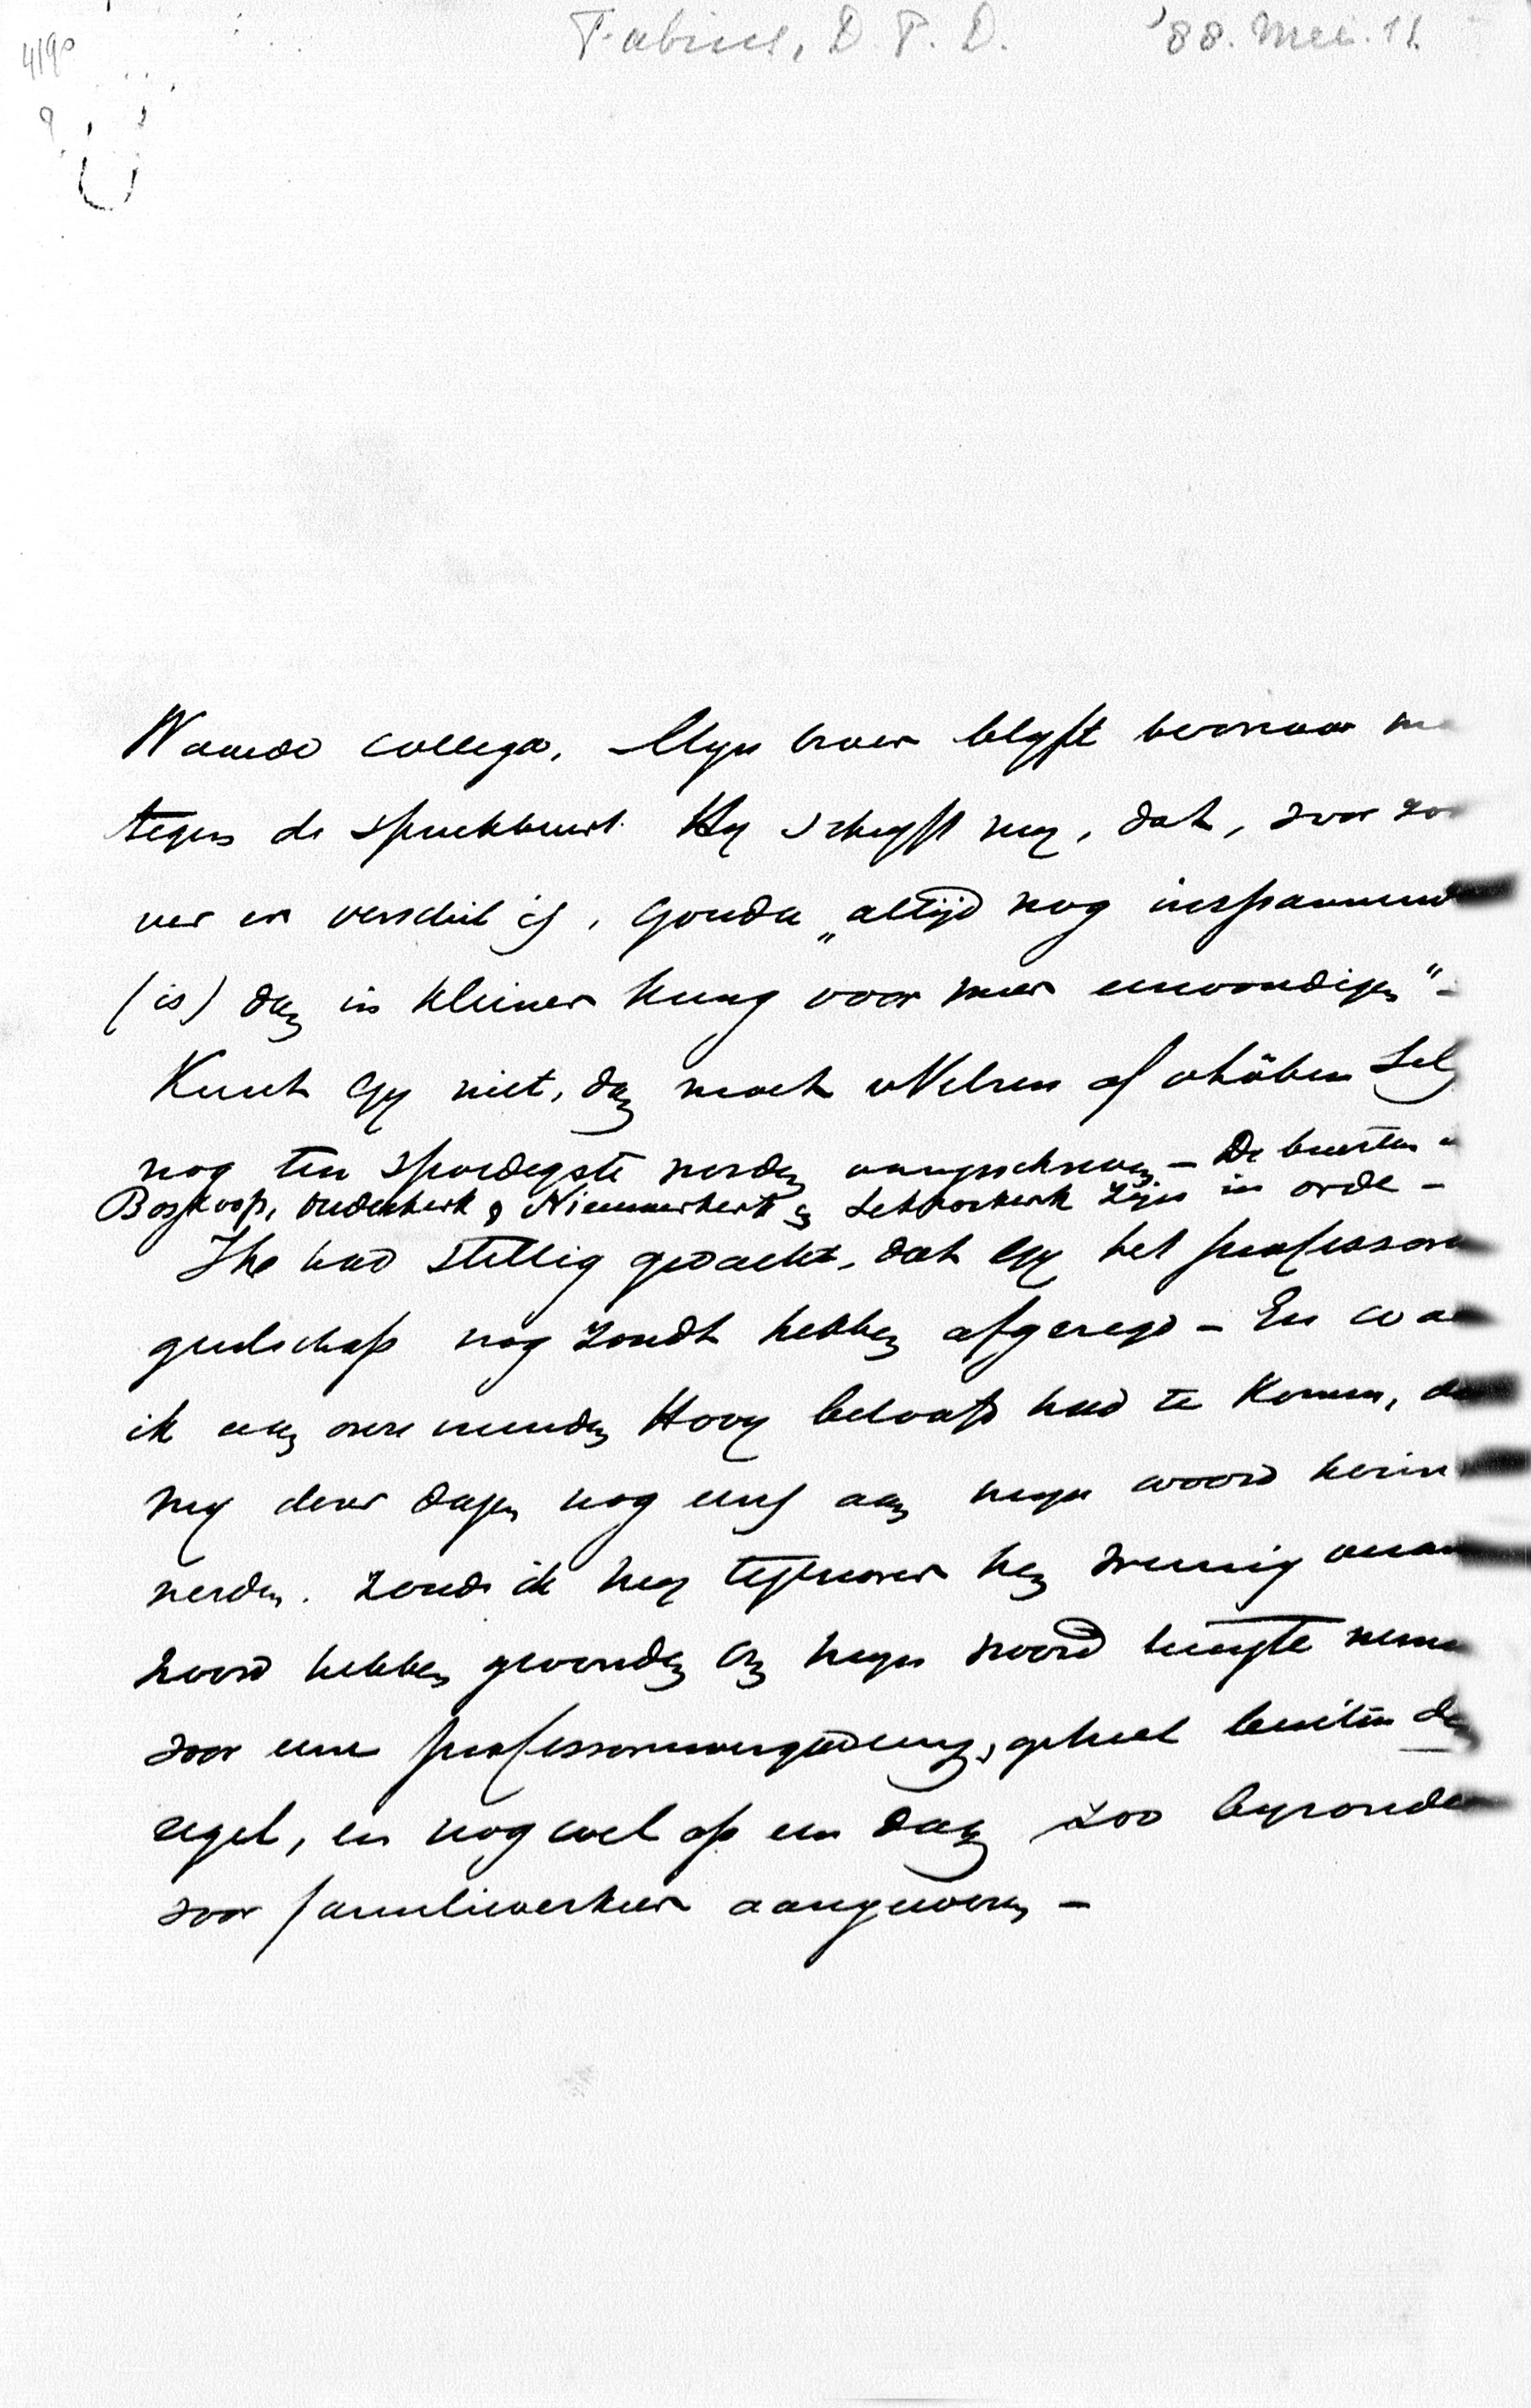 4190
9
Fabius, D. P. D. '88. Mei. 11.
Waarde collega, Mijn broer blyft bezwaar
tegen de spreekbeurt. Hy schryft my, dat, voor zoo
ver er verschil is, Gouda „altijd nog inspannender
(is) dan in kleiner kring voor meer eenvoudigen" -
Kunt Gy niet, dan moet v Velzen of vLöben Sels
nog ten spoedigste worden aangeschreven - De beurten
Boskoop, Ouderkerk, Nieuwerkerk en Lekkerkerk zijn in orde -
Ik had stellig gedacht, dat Gy het professoren
gezelschap nog zoudt hebben afgezegd - En
ik aan onze vrienden Hovy beloofd had te komen,
my dezer dagen nog eens aan mijn woord herinnerden
Zoude ik my tegenover hen weinig
hebben gevonden mijn woord terugte nemen
voor eene professorenvergadering, geheel buiten den
regel, en nog wel op een dag zoo byzonder
voor familieverkeer aangewezen -